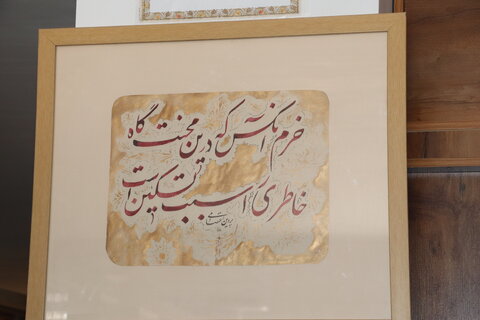 خرم آنکس که درین محنت گاه
خاطری را سبب تسکین است
پروین اعتصامی